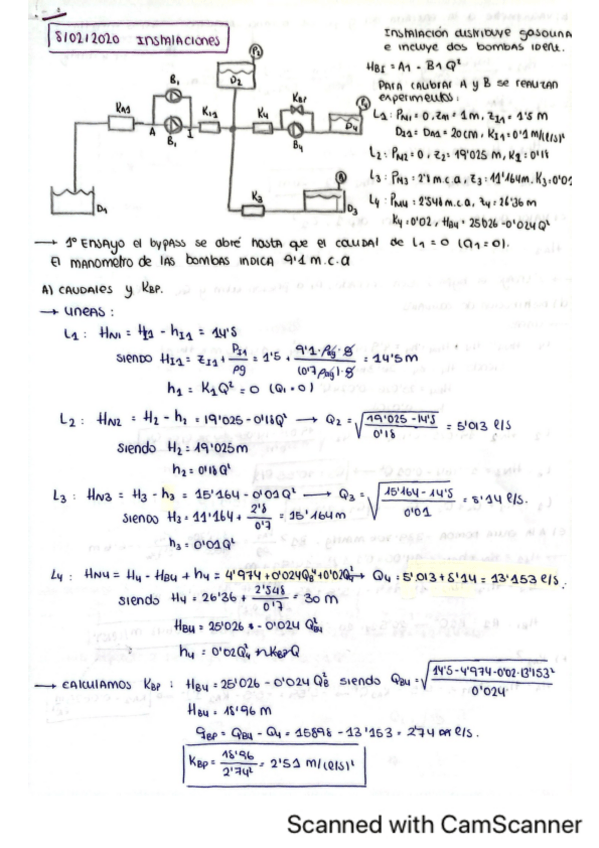 8/02/2020 Instalaciones
Instalación distribuye gasolina
e incluye dos bombas ident.
HBI = A1 - B1 Q²
Para calibrar A y B se realizan
experimentos:
L1: PM1 = 0, ZM = 1m, ZI1 = 1'5 m
DI1 = DM1 = 20cm, KI1 = 0'1 m/(l/s)²
L2: PM2 = 0, Z2 = 19'025 m, K2 = 0'18
L3: PM3 = 2'8 m.c.a, Z3 = 11'164m. K3 = 0'01
L4: PM4 = 2'548 m.c.a, Z4 = 26'36 m
K4 = 0'02, HB4 = 25'026 - 0'024 Q²
KA1
B1
A
B1
I
KI1
P2
D2
K4
KBP
B4
D4
K3
D3
D1
→ 1º Ensayo el bypass se abre hasta que el caudal de L1 = 0 (Q1 = 0).
El manometro de las bombas indica 9'1 m.c.a
A) Caudales y KBP.
→ Lineas:
L1: HN1 = HI1 - hI1 = 14'5
siendo HI1 = ZI1 + PI1/ρg = 1'5 + 9'1·ρag·g/(0'7ρag)·g = 14'5m
h1 = K1Q² = 0 (Q1 = 0)
L2: HN2 = H2 - h2 = 19'025 - 0'18Q² → Q2 = √(19'025 - 14'5/0'18) = 5'013 l/s
siendo H2 = 19'025m
h2 = 0'18Q²
L3: HN3 = H3 - h3 = 15'164 - 0'01Q² → Q3 = √(15'164 - 14'5/0'01) = 8'14 l/s.
siendo H3 = 11'164 + 2'8/0'7 = 15'164 m
h3 = 0'01Q²
L4: HN4 = H4 - HB4 + h4 = 4'974 + 0'024Q²B + 0'02Q²4 → Q4 = 5'013 + 8'14 = 13'153 l/s.
siendo H4 = 26'36 + 2'548/0'7 = 30 m
HB4 = 25'026 - 0'024 Q²B4
h4 = 0'02Q²4
→ Calculamos KBP: HB4 = 25'026 - 0'024 Q²B siendo QB4 = √(14'5 - 4'974 - 0'02·13'153²/0'024)
HB4 = 18'96 m
qBP = QB4 - Q4 = 15898 - 13'153 = 2'74 l/s.
KBP = 18'96/2'74² = 2'51 m/(l/s)²
Scanned with CamScanner